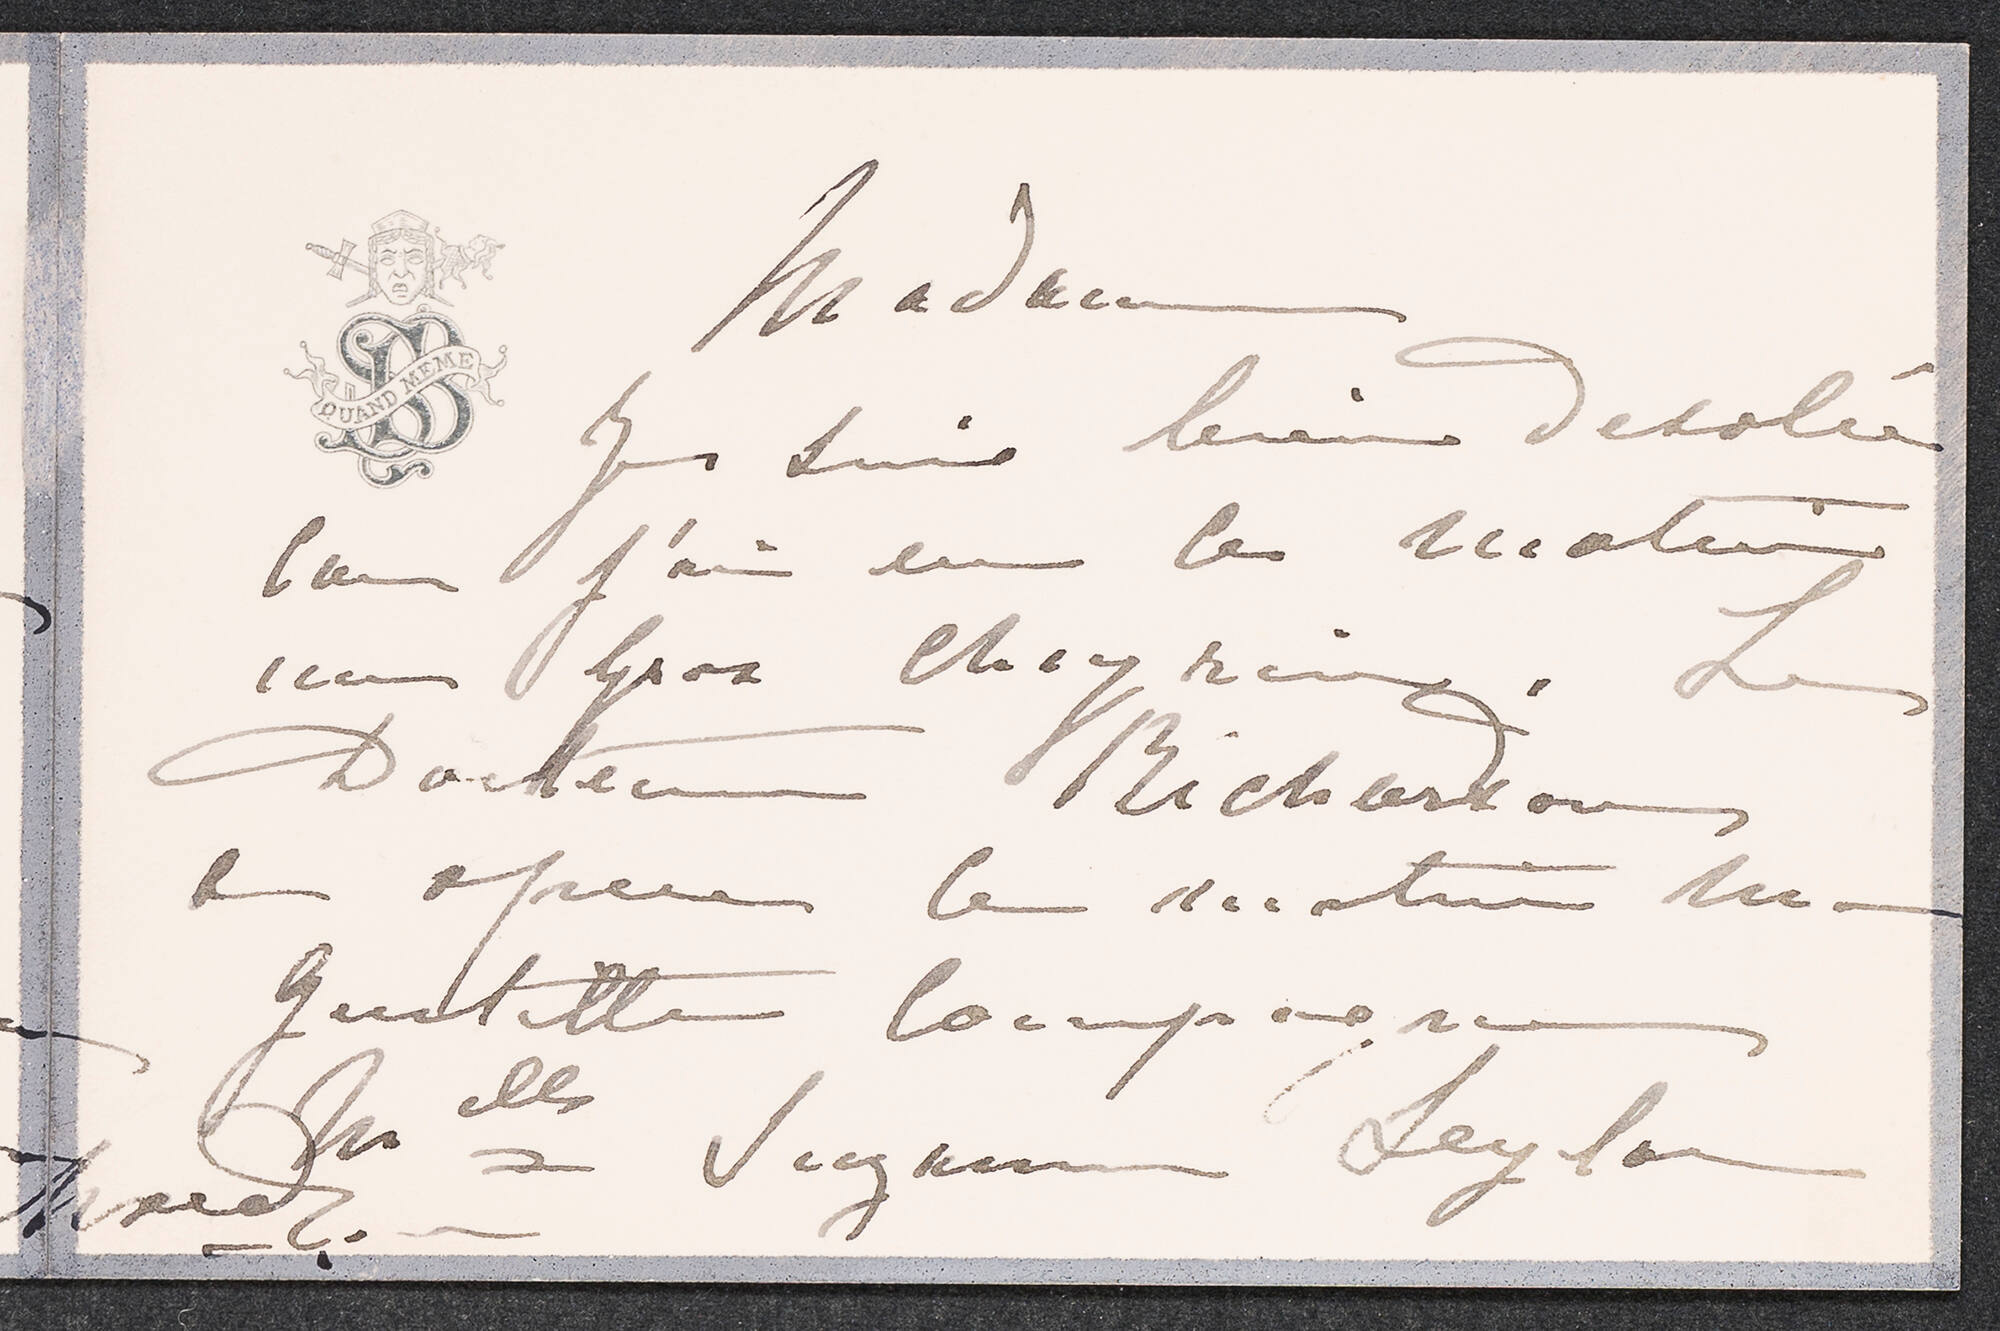 QUAND MEME
Madame
Je suis bien desolée
car j'ai eu ce matin
un gros chagrin. Le
Docteur Richardson
a opéré ce matin ma
gentille compagne
Melle Suzanne Seylor